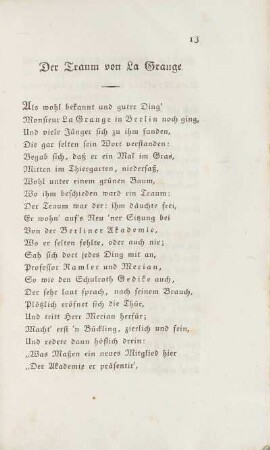 13
Der Traum von La Grange
Als wohl bekannt und guter Ding'
Monsieur La Grange in Berlin noch ging,
Und viele Jünger sich zu ihm fanden,
Die gar selten sein Wort verstanden:
Begab sich, daß er ein Mal im Gras,
Mitten im Thiergarten, niedersaß,
Wohl unter einem grünen Baum,
Wo ihm beschieden ward ein Traum:
Der Traum war der: ihm däuchte frei,
Er wohn' auf's Neu 'ner Sitzung bei
Von der Berliner Akademie,
Wo er selten fehlte, oder auch nie;
Sah sich dort jedes Ding mit an,
Professor Ramler und Merian,
So wie den Schulroth Gedike auch,
Der sehr laut sprach, nach seinem Brauch,
Plötzlich eröfnet sich die Thür,
Und tritt Herr Merian herfür;
Macht' erst 'n Bückling, zierlich und fein,
Und redete dann höflich drein:
„Was Maßen ein neues Mitglied hier
„Der Akademie er präsentir',